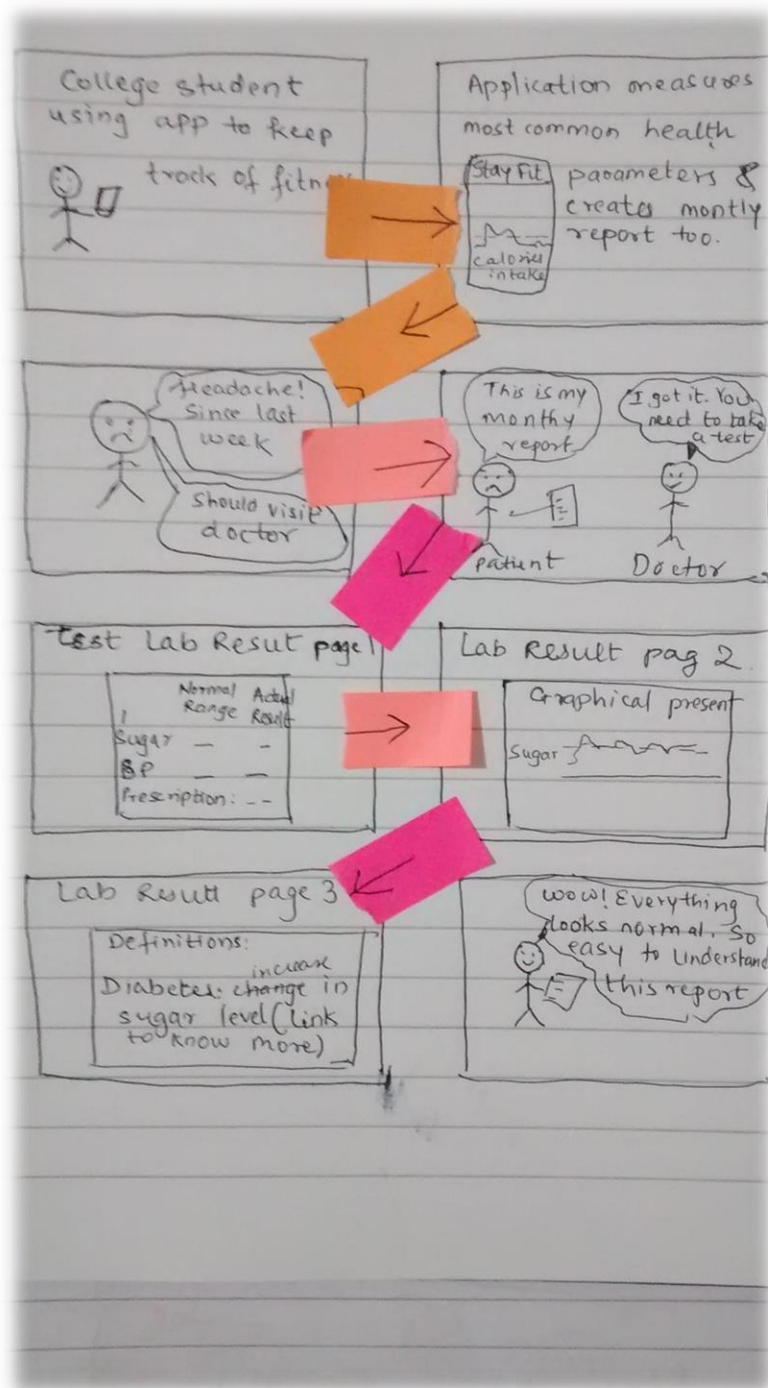 College student
using app to keep
track of fitne
Application measures
most common health
parameters &
creates montly
report too.
Stay Fit
calories
intake
Headache!
Since last
week
Should visit
doctor
This is my
monthy
report
I got it. You
need to take
a test
Patient
Doctor
Test Lab Resut page 1
Normal Actual
Range Result
Sugar — –
BP — —
Prescription: - -
Lab Result pag 2
Graphical present
Sugar
Lab Result page 3
Definitions:
increase
Diabetes: change in
sugar level (link
to know more)
Wow! Everything
looks normal. So
easy to understand
this report